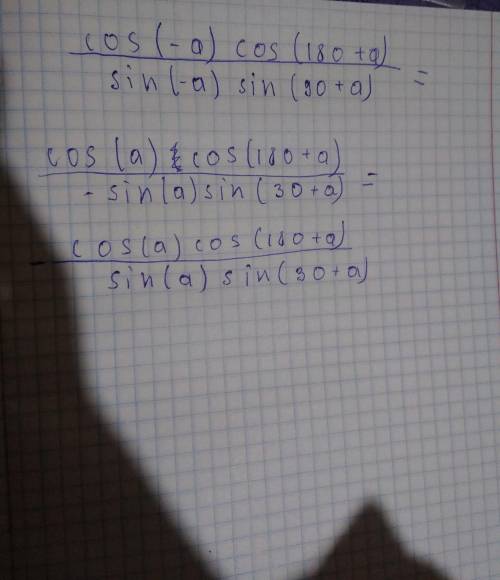 cos(-a) cos(180+a)
sin(-a) sin(90+a) =
cos(a) cos(180+a)
-sin(a) sin(30+a) =
- cos(a) cos(180+a)
sin(a) sin(30+a)